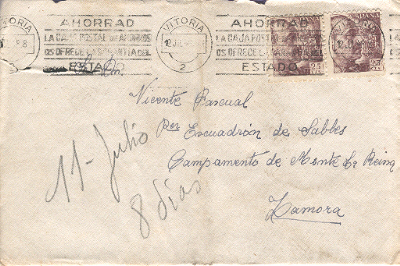 AHORRAD
LA CAJA POSTAL DE AHORROS
OS OFRECE LA GARANTIA DEL
ESTADO
VITORIA
12 JUL
2
AHORRAD
LA CAJA POSTAL
OS OFRECE LA
ESTADO
25
25
Vicente Pascual
Escuadrón de Sables
Campamento de Monte la Reina
Zamora
11-Julio
8 días